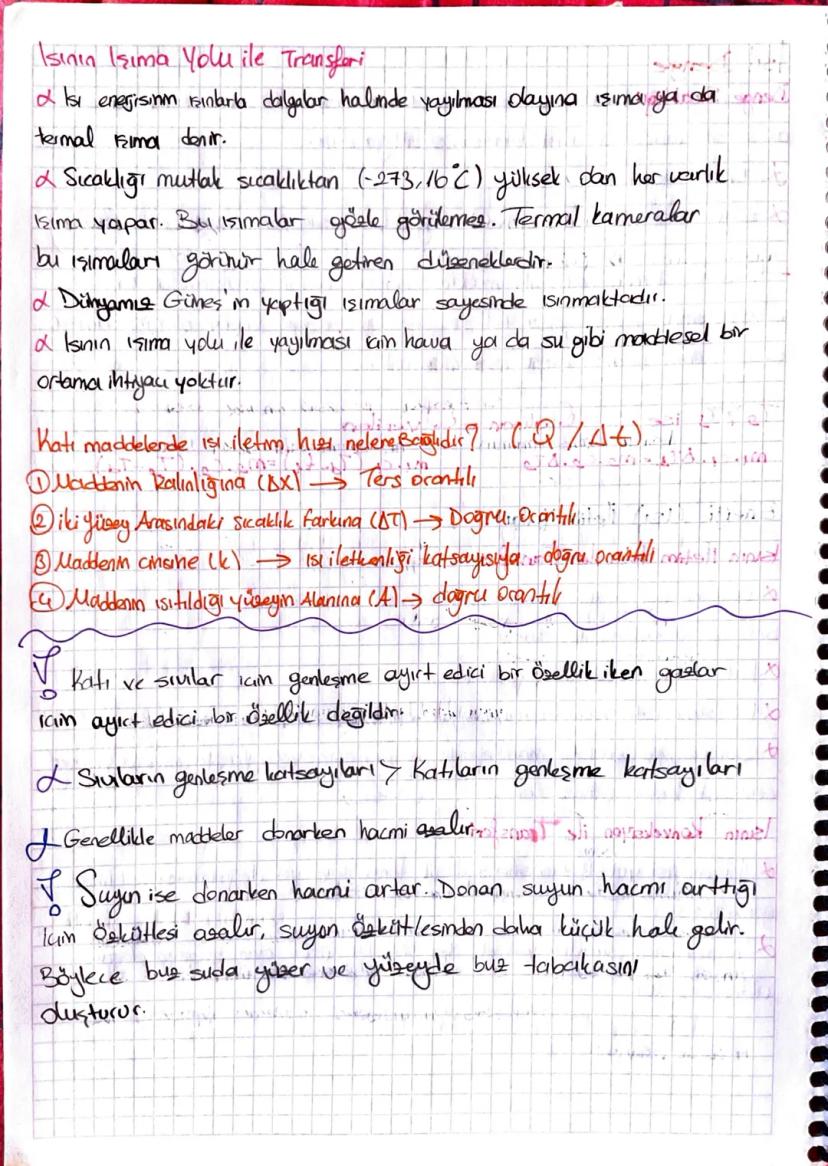 Isının Işıma Yolu ile Transferi
α Isı enerjisinin ışınlarla dalgalar halinde yayılması olayına ışıma ya da
termal ışıma denir.
α Sıcaklığı mutlak sıcaklıktan (-273,16°C) yüksek olan her varlık
ışıma yapar. Bu ışımalar gözle görülemez. Termal kameralar
bu ışımaları görünür hale getiren düzeneklerdir.
α Dünyamız Güneş'in yaptığı ışımalar sayesinde ısınmaktadır.
α Isının ışıma yolu ile yayılması için hava ya da su gibi maddesel bir
ortama ihtiyacı yoktur.
Katı maddelerde ısı iletim hızı nelere Bağlıdır? (Q / Δt)
① Maddenin kalınlığına (ΔX) → Ters orantılı
② iki Yüzey Arasındaki sıcaklık farkına (ΔT) → Doğru Orantılı
③ Maddenin cinsine (k) → ısı iletkenliği katsayısıyla doğru orantılı
④ Maddenin ısıtıldığı yüzeyin Alanına (A) → doğru orantılı
! Katı ve sıvılar için genleşme ayırt edici bir özellik iken gazlar
için ayırt edici bir özellik değildir.
α Sıvıların genleşme katsayıları > Katıların genleşme katsayıları
α Genellikle maddeler donarken hacmi azalır.
! Suyun ise donarken hacmi artar. Donan suyun hacmi arttığı
için özkütlesi azalır, suyun özkütlesinden daha küçük hale gelir.
Böylece buz suda yüzer ve yüzeyde buz tabakasını
oluşturur.